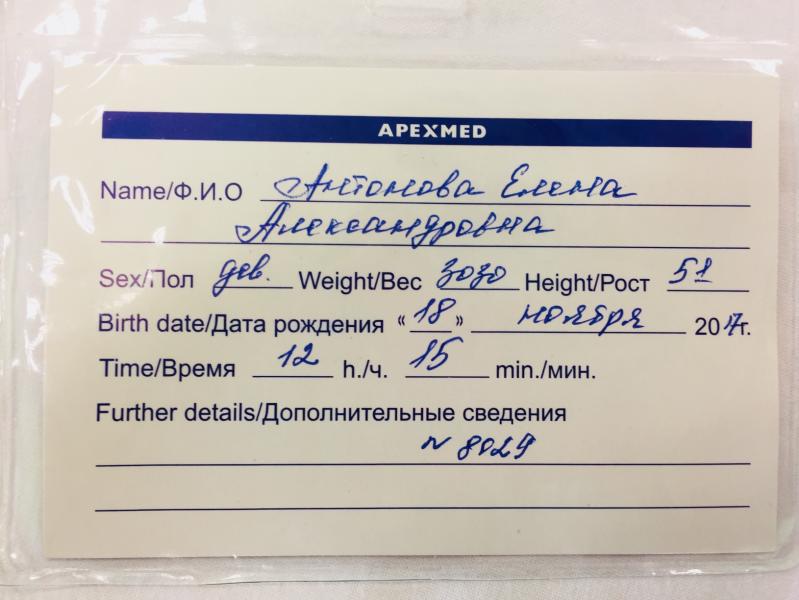 APEXMED
Name/Ф.И.О Антонова Елена
Александровна
Sex/Пол дев. Weight/Вес 3030 Height/Рост 51
Birth date/Дата рождения «18» ноября 2017г.
Time/Время 12 h./ч. 15 min./мин.
Further details/Дополнительные сведения
N 8029